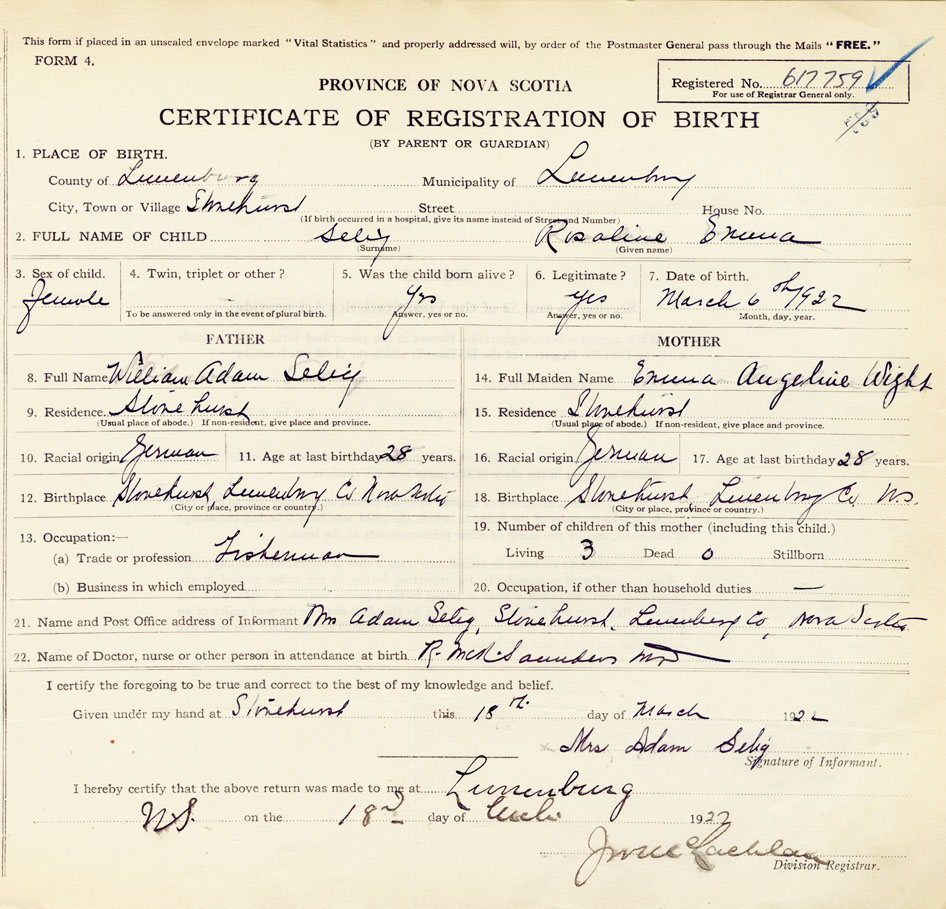 This form if placed in an unsealed envelope marked "Vital Statistics" and properly addressed will, by order of the Postmaster General pass through the Mails "FREE."
FORM 4.
Registered No. 617759
For use of Registrar General only.
PROVINCE OF NOVA SCOTIA
CERTIFICATE OF REGISTRATION OF BIRTH
(BY PARENT OR GUARDIAN)
1. PLACE OF BIRTH.
County of Lunenburg Municipality of Lunenburg
City, Town or Village Stonehurst Street House No.
(If birth occurred in a hospital, give its name instead of Street and Number)
2. FULL NAME OF CHILD Selig Rosaline Emma
(Surname) (Given name)
3. Sex of child. 4. Twin, triplet or other? 5. Was the child born alive? 6. Legitimate? 7. Date of birth.
Female Yes yes March 6th 1922
To be answered only in the event of plural birth. Answer, yes or no. Answer, yes or no. Month, day, year.
FATHER MOTHER
8. Full Name William Adam Selig 14. Full Maiden Name Emma Angeline Wight
9. Residence. Stonehurst 15. Residence Stonehurst
(Usual place of abode.) If non-resident, give place and province. (Usual place of abode.) If non-resident, give place and province.
10. Racial origin German 11. Age at last birthday 28 years. 16. Racial origin German 17. Age at last birthday 28 years.
12. Birthplace Stonehurst, Lunenburg Co Nova Scotia 18. Birthplace Stonehurst, Lunenburg Co, NS.
(City or place, province or country.) (City or place, province or country.)
13. Occupation:— 19. Number of children of this mother (including this child.)
(a) Trade or profession Fisherman Living 3 Dead 0 Stillborn
(b) Business in which employed 20. Occupation, if other than household duties —
21. Name and Post Office address of Informant Mrs Adam Selig, Stonehurst, Lunenburg Co, Nova Scotia
22. Name of Doctor, nurse or other person in attendance at birth. Saunders MD
I certify the foregoing to be true and correct to the best of my knowledge and belief.
Given under my hand at Stonehurst this 18th day of March 1922
Mrs Adam Selig
Signature of Informant.
I hereby certify that the above return was made to me at Lunenburg
N.S. on the 18 day of 1922
Division Registrar.